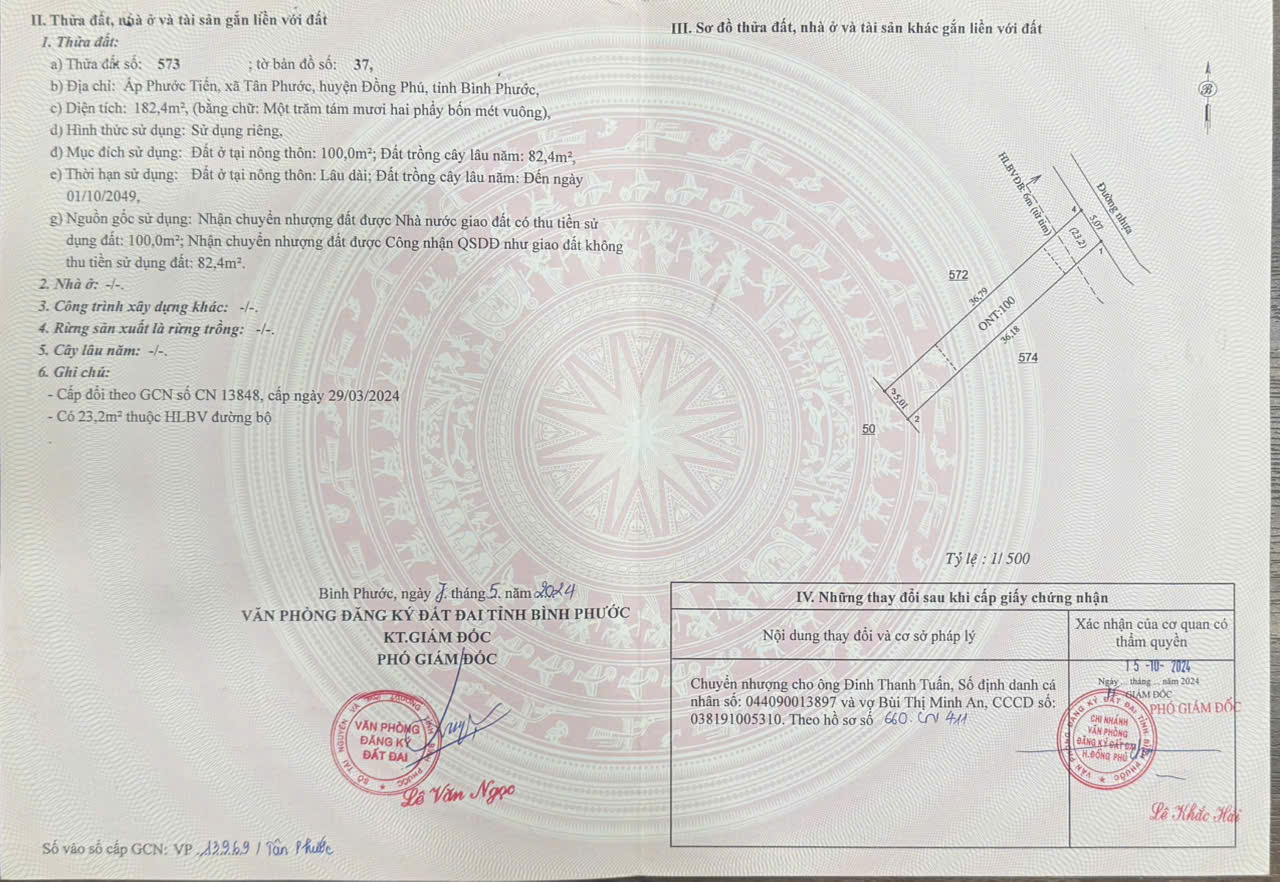 II. Thửa đất, nhà ở và tài sản gắn liền với đất
1. Thửa đất:
a) Thửa đất số: 573 ; tờ bản đồ số: 37,
b) Địa chỉ: Ấp Phước Tiến, xã Tân Phước, huyện Đồng Phú, tỉnh Bình Phước,
c) Diện tích: 182,4m², (bằng chữ: Một trăm tám mươi hai phẩy bốn mét vuông),
d) Hình thức sử dụng: Sử dụng riêng,
đ) Mục đích sử dụng: Đất ở tại nông thôn: 100,0m²; Đất trồng cây lâu năm: 82,4m²,
e) Thời hạn sử dụng: Đất ở tại nông thôn: Lâu dài; Đất trồng cây lâu năm: Đến ngày
01/10/2049,
g) Nguồn gốc sử dụng: Nhận chuyển nhượng đất được Nhà nước giao đất có thu tiền sử
dụng đất: 100,0m²; Nhận chuyển nhượng đất được Công nhận QSDĐ như giao đất không
thu tiền sử dụng đất: 82,4m².
2. Nhà ở: -/-.
3. Công trình xây dựng khác: -/-.
4. Rừng sản xuất là rừng trồng: -/-.
5. Cây lâu năm: -/-.
6. Ghi chú:
- Cấp đổi theo GCN số CN 13848, cấp ngày 29/03/2024
- Có 23,2m² thuộc HLBV đường bộ
Bình Phước, ngày 7 tháng 5 năm 2024
VĂN PHÒNG ĐĂNG KÝ ĐẤT ĐAI TỈNH BÌNH PHƯỚC
KT.GIÁM ĐỐC
PHÓ GIÁM ĐỐC
VĂN PHÒNG
ĐĂNG KÝ
ĐẤT ĐAI
Lê Văn Ngọc
Số vào sổ cấp GCN: VP 13969 / Tân Phước
III. Sơ đồ thửa đất, nhà ở và tài sản khác gắn liền với đất
B
HLBVĐB: 6m (từ tim)
Đường nhựa
4
5,07
(23,2)
1
572
36,79
ONT:100
36,18
574
3
5,01
2
50
Tỷ lệ : 1/ 500
IV. Những thay đổi sau khi cấp giấy chứng nhận
Nội dung thay đổi và cơ sở pháp lý
Xác nhận của cơ quan có
thẩm quyền
Chuyển nhượng cho ông Đinh Thanh Tuấn, Số định danh cá
nhân số: 044090013897 và vợ Bùi Thị Minh An, CCCD số:
038191005310. Theo hồ sơ số 660. CN 411
15 -10- 2024
Ngày... tháng ... năm 2024
GIÁM ĐỐC
PHÓ GIÁM ĐỐC
VĂN PHÒNG ĐĂNG KÝ ĐẤT ĐAI TỈNH BÌNH PHƯỚC
CHI NHÁNH
VĂN PHÒNG
ĐĂNG KÝ ĐẤT ĐAI
H.ĐỒNG PHÚ
Lê Khắc Hải